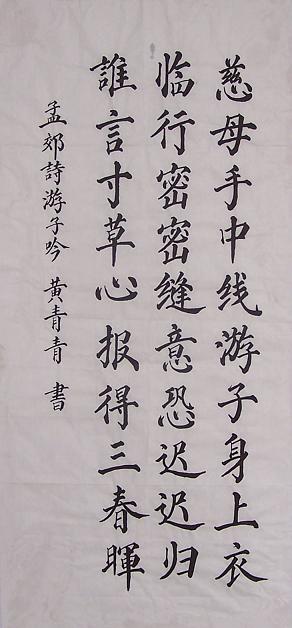 慈母手中线游子身上衣
临行密密缝意恐迟迟归
誰言寸草心报得三春暉
孟郊詩游子吟 黄青青 書